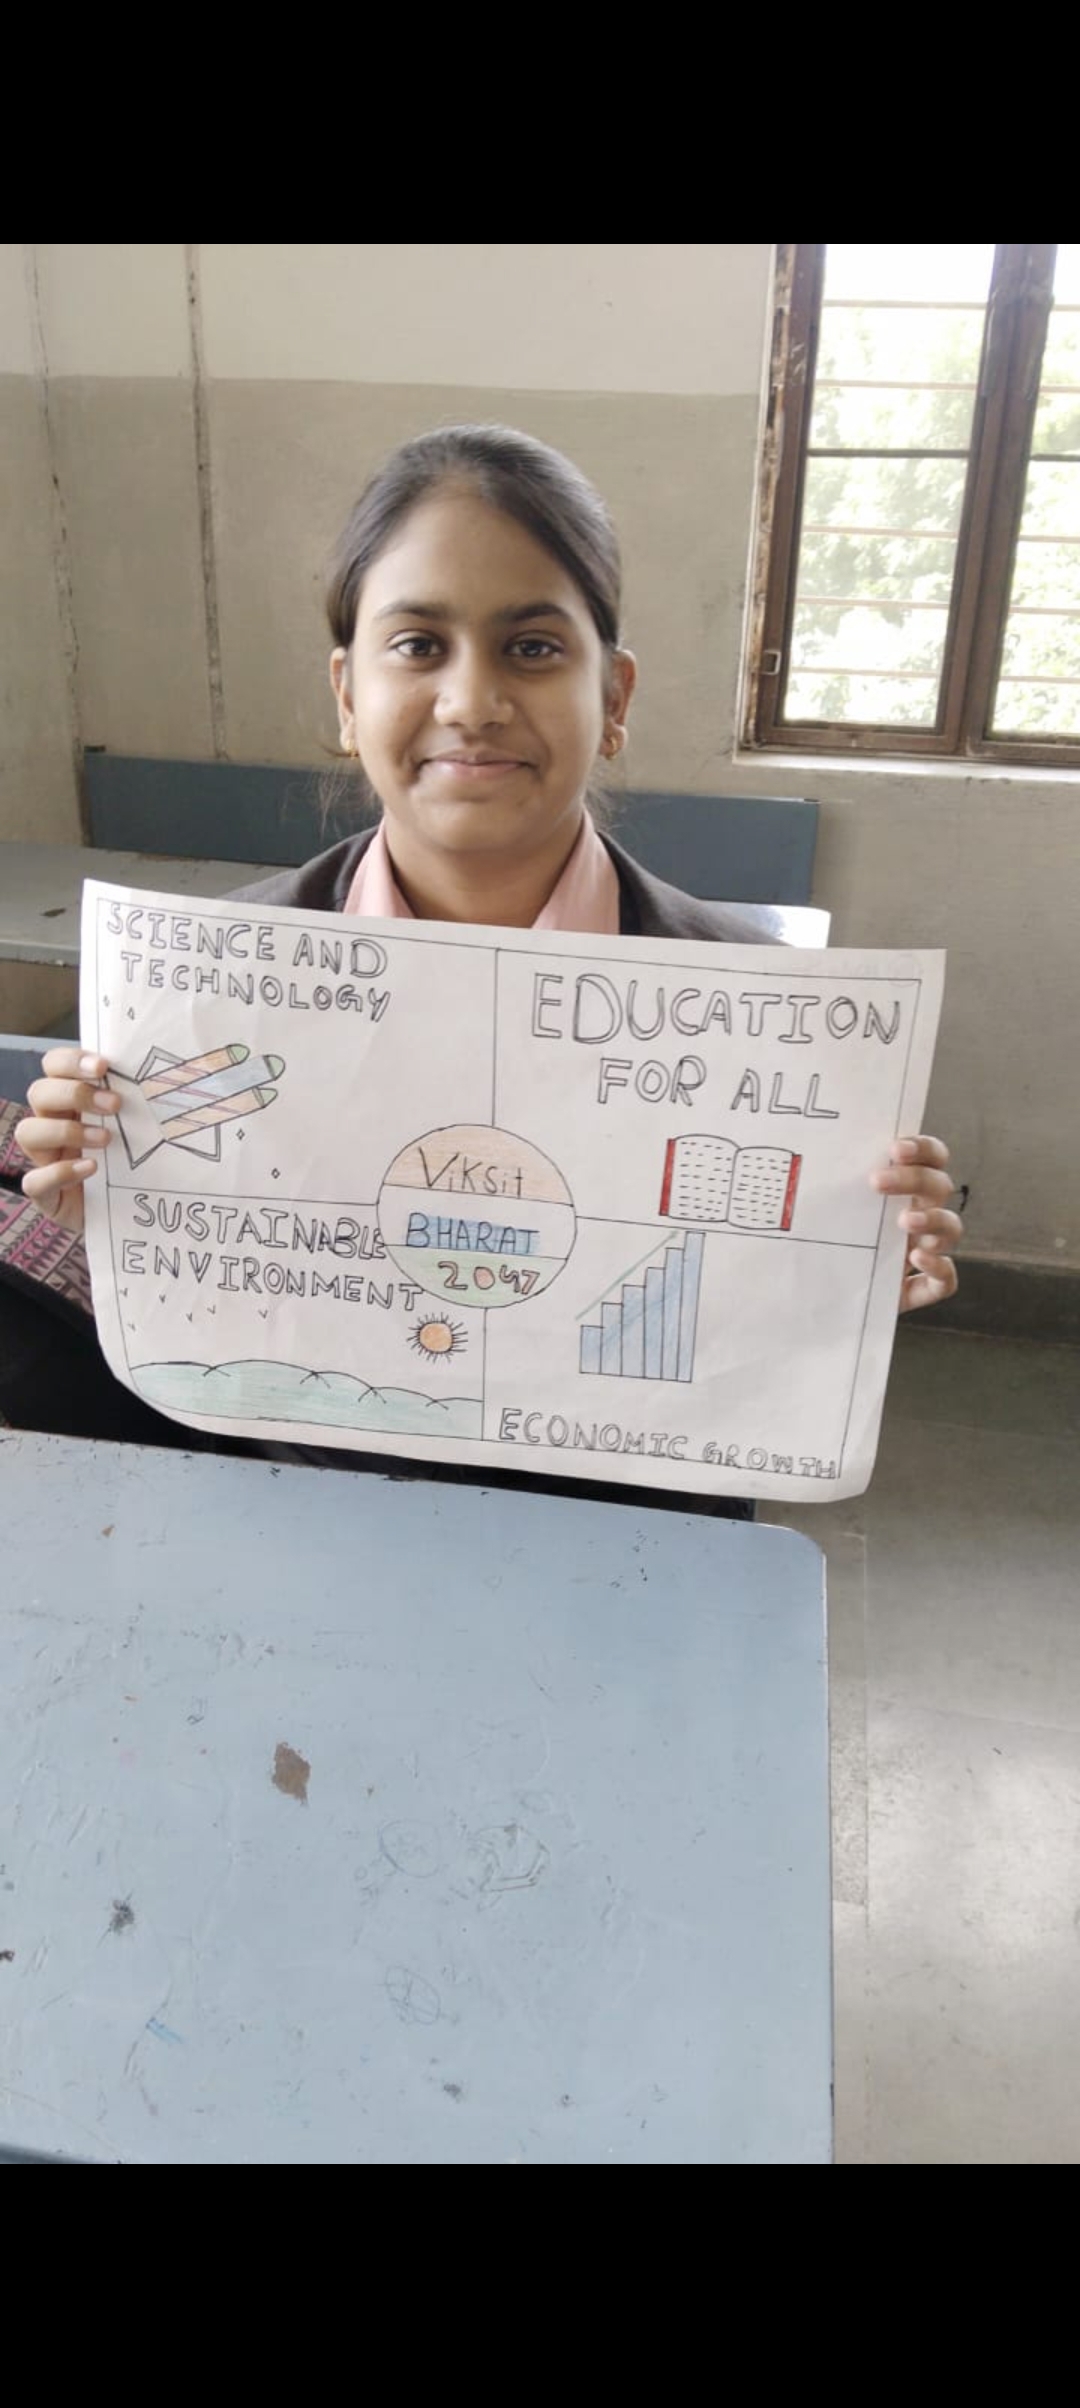 SCIENCE AND
TECHNOLOGY
EDUCATION
FOR ALL
Viksit
BHARAT
2047
SUSTAINABLE
ENVIRONMENT
ECONOMIC GROWTH